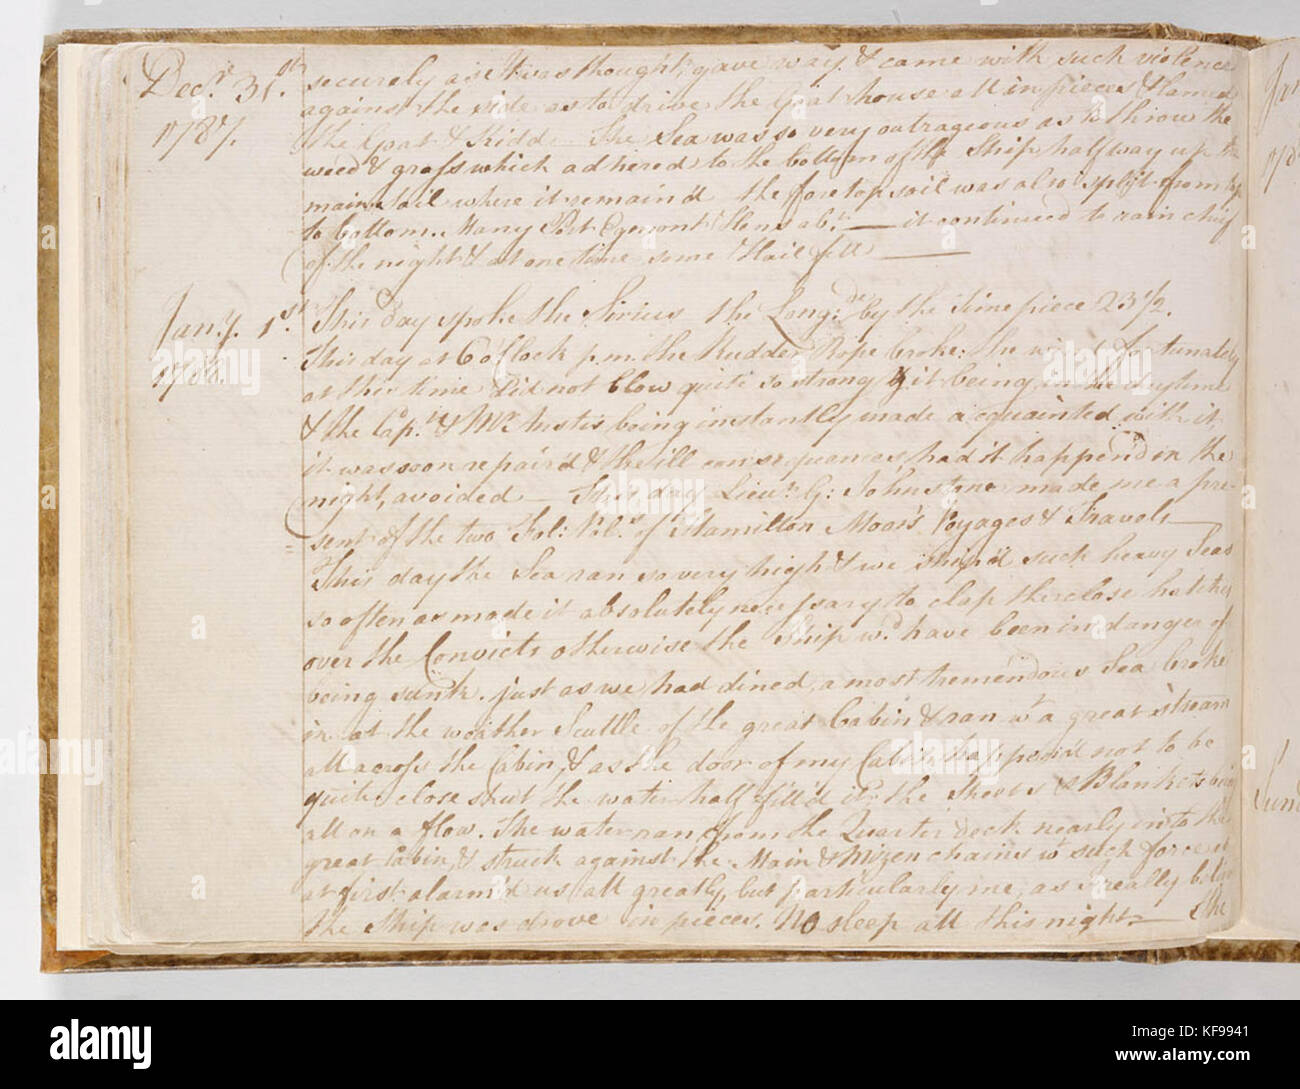 Decr. 31st. securely as it was thought, gave way & came with such violence
1787. against the side as to drive the Goat house all in pieces & lamed
the Goat & Kidd — The Sea was so very outrageous as to throw the
weed & grass which adhered to the bottom of the Ship half way up the
mainsail where it remain'd the foretopsail was also split from top
to bottom. Many Port Egmont Hens abt. — it continued to rain chief
of the night & at one time some Hail fell —
Jany. 1st. This day spoke the Sirius the Longde. by the Timepiece 23 1/2.
1788. This day at 6 o'Clock p.m. the Rudder Rope broke: the wind fortunately
at this time did not blow quite so strong & it being in the daytime
& the Capt. & Mr. being instantly made acquainted with it,
it was soon repair'd & the ill consequences had it happen'd in the
night, avoided — This day Lieut. G: Johnstone made me a pre-
= sent of the two Fol: Vols. of Hamilton Moor's Voyages & Travels —
This day the Sea ran so very high & we shipp'd such heavy Seas
so often as made it absolutely necessary to clap the close hatches
over the Convicts otherwise the Ship wd. have been in danger of
being sunk. just as we had dined, a most tremendous Sea broke
in at the weather Scuttle of the great Cabin & ran wt. a great stream
all across the Cabin, & as the door of my Cabin happen'd not to be
quite close shut the water half fill'd it; the Sheets & Blankets being
all on a flow. The water ran from the Quarter deck nearly into the
great Cabin, & struck against the Main & Mizen chains wt. such force
at first alarm'd us all greatly, but particularly me, as I really
the Ship was drove in pieces. No sleep all this night —
& the
Jan
178
Sund
alamy
Image ID: KF9941
www.alamy.com